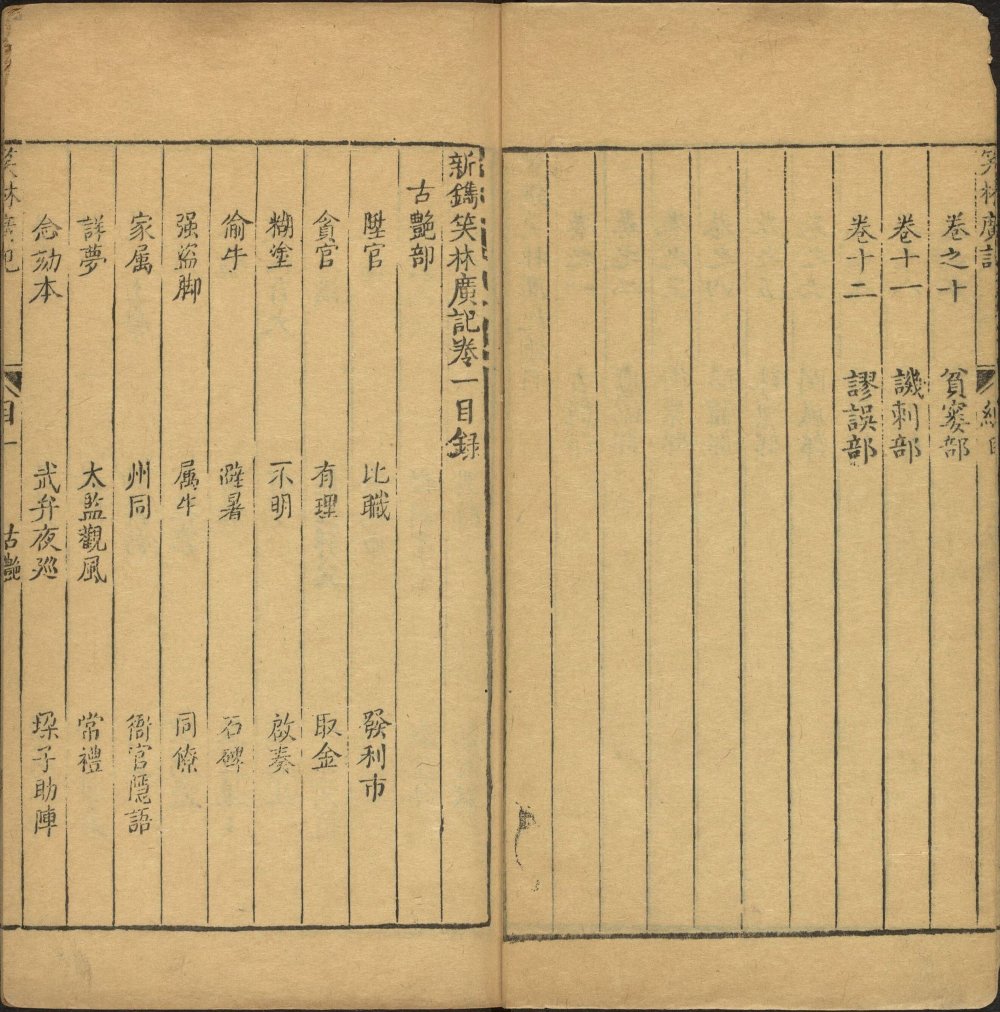 笑林廣記
總目
卷之十 貧窶部
卷十一 譏刺部
卷十二 謬誤部
新鐫笑林廣記卷一目錄
古艷部
陞官 比職 發利市
貪官 有理 取金
糊塗 不明 啟奏
偷牛 避暑 石碑
强盜脚 属牛 同僚
家属 州同 衙官隱語
詳夢 太監觀風 常禮
念劾本 武弁夜巡 垜子助陣
笑林廣記
目一 古艷